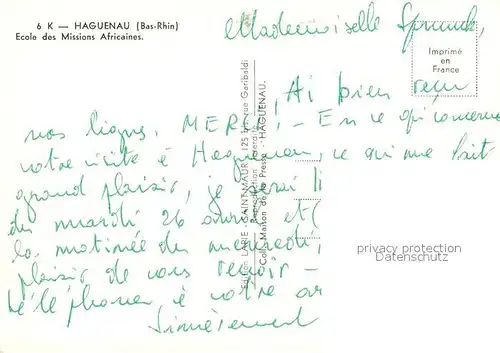 6 K — HAGUENAU (Bas-Rhin)
Ecole des Missions Africaines.
Mademoiselle
Imprimé
en
France
Ai bien reçu
nos lignes, MERCI! - En ce qui concerne
votre visite à Haguenau, ce qui me fait
grand plaisir, je serai là
du mardi 26 et
la matinée du mercredi,
plaisir de vous revoir -
téléphoner à votre
Sincèrement
Edition LAPIE - SAINT-MAUR, 125 rue Garibaldi
Reproduction interdite
Coll. Maison de la Presse - HAGUENAU.
privacy protection
Datenschutz